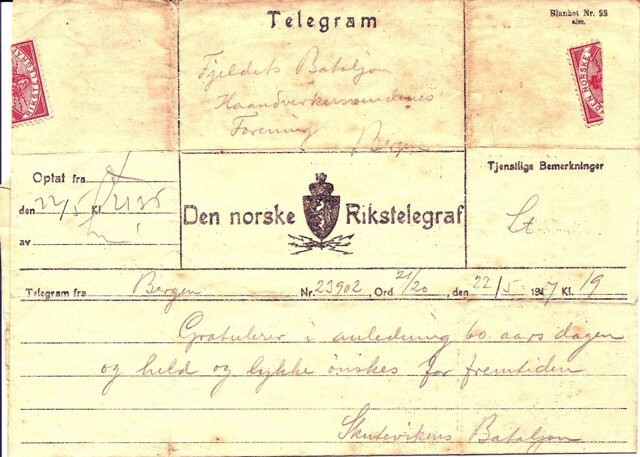 Telegram
Blanket Nr. 23
alm.
Fjeldets Bataljon
Haandverkersvendenes
Forening
Bergen
DEN NORSKE
Optat fra
den 22/5 Kl. 2135
av
Den norske Rikstelegraf
Tjenstlige Bemerkninger
Lt
Telegram fra Bergen Nr. 23902, Ord 21/20, den 22/5 1917 Kl. 19
Gratulerer i anledning 60 aars dagen
og held og lykke ønskes for fremtiden
Skutevikens Bataljon